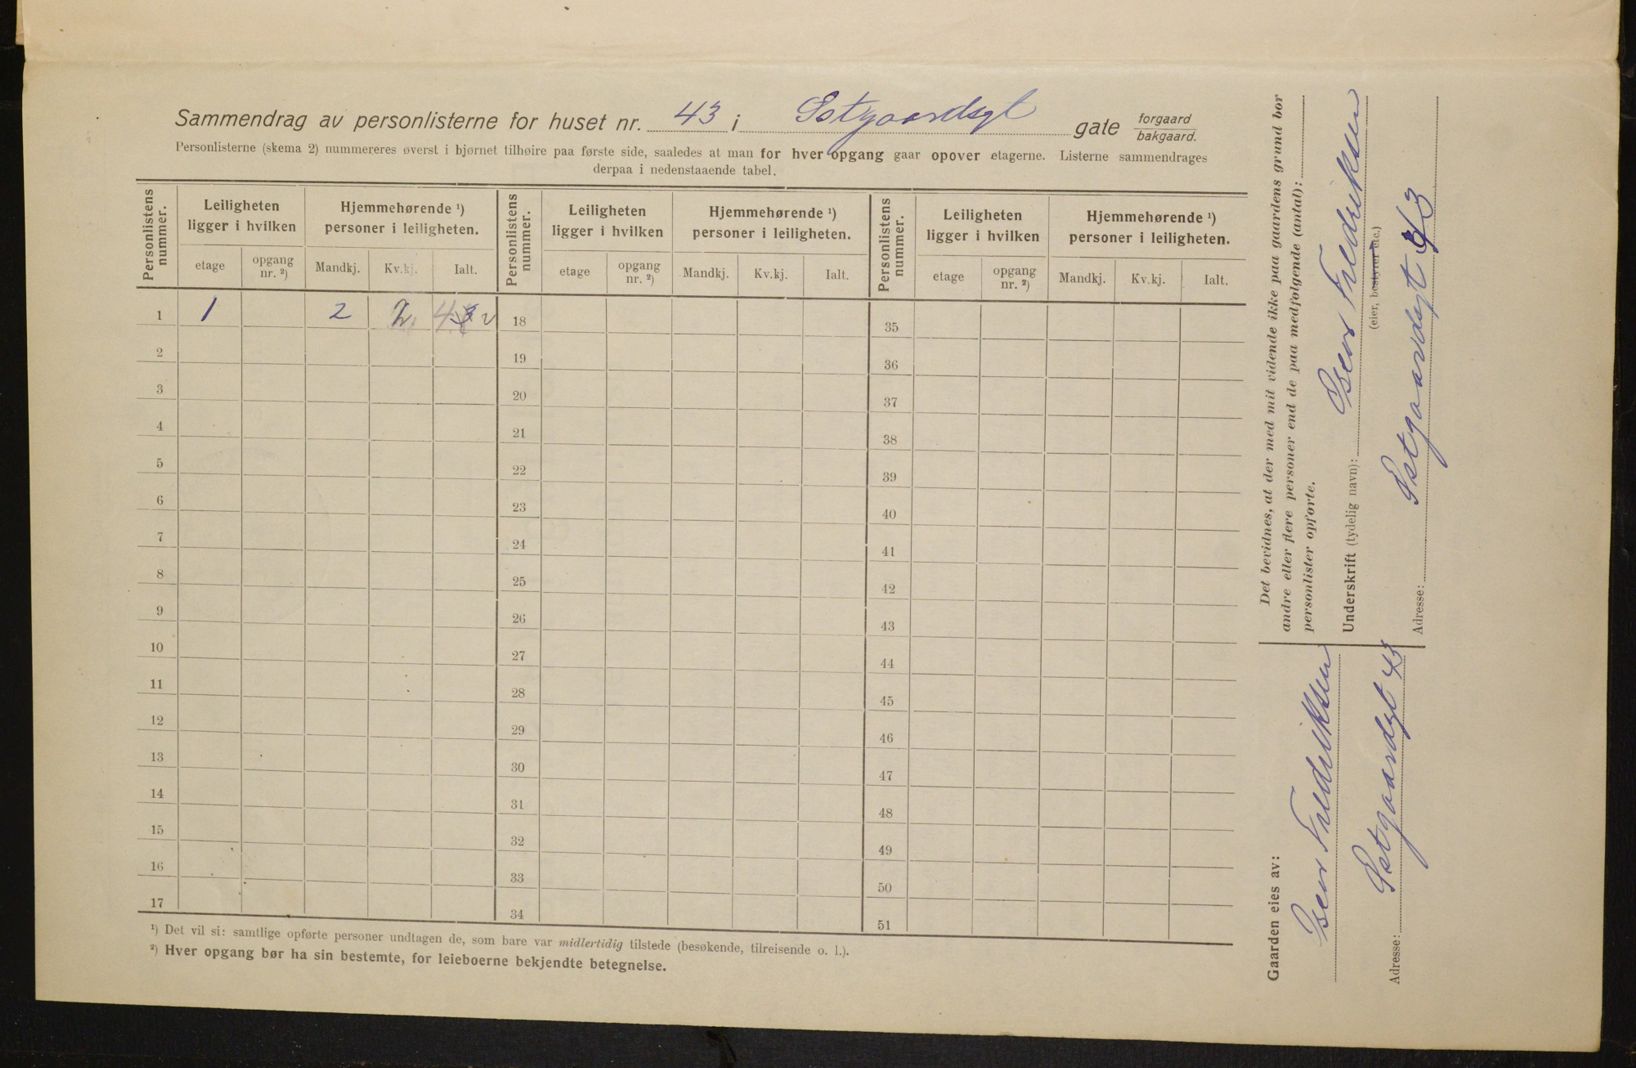 Sammendrag av personlisterne for huset nr. 43 i Østgaardsgt gate forgaard bakgaard.
Personlisterne (skema 2) nummereres øverst i hjørnet tilhøire paa første side, saaledes at man for hver opgang gaar opover etagerne. Listerne sammendrages
derpaa i nedenstaaende tabel.
Personlistens nummer. Leiligheten ligger i hvilken Hjemmehørende ¹) personer i leiligheten. Personlistens nummer. Leiligheten ligger i hvilken Hjemmehørende ¹) personer i leiligheten. Personlistens nummer. Leiligheten ligger i hvilken Hjemmehørende ¹) personer i leiligheten.
etage opgang nr. ²) Mandkj. Kv.kj. Ialt. etage opgang nr. ²) Mandkj. Kv.kj. Ialt. etage opgang nr. ²) Mandkj. Kv.kj. Ialt.
1 1 2 2 4 18 35
2 19 36
3 20 37
4 21 38
5 22 39
6 23 40
7 24 41
8 25 42
9 26 43
10 27 44
11 28 45
12 29 46
13 30 47
14 31 48
15 32 49
16 33 50
17 34 51
¹) Det vil si: samtlige opførte personer undtagen de, som bare var midlertidig tilstede (besøkende, tilreisende o. l.).
²) Hver opgang bør ha sin bestemte, for leieboerne bekjendte betegnelse.
Det bevidnes, at der med mit vidende ikke paa gaardens grund bor
andre eller flere personer end de paa medfølgende (antal):
personlister opførte.
Underskrift (tydelig navn): Fredriksen
(eier, bestyrer etc.)
Adresse: Østgaardsgt 43
Gaarden eies av:
Fredriksen
Adresse: Østgaardsgt 43